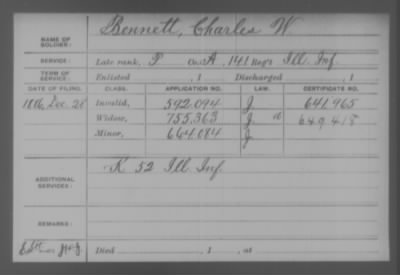 NAME OF SOLDIER: Bennett, Charles W
SERVICE: Late rank, P Co. A, 141 Reg't Ill. Inf.
TERM OF SERVICE: Enlisted , 1 Discharged , 1
DATE OF FILING. CLASS. APPLICATION NO. LAW. CERTIFICATE NO.
1886, Dec. 28 Invalid, 592.094 J. 641.965
Widow, 755.363 J. 649.418
Minor, 664.084 J
ADDITIONAL SERVICES: K 52 Ill. Inf.
REMARKS:
Died , 1 , at